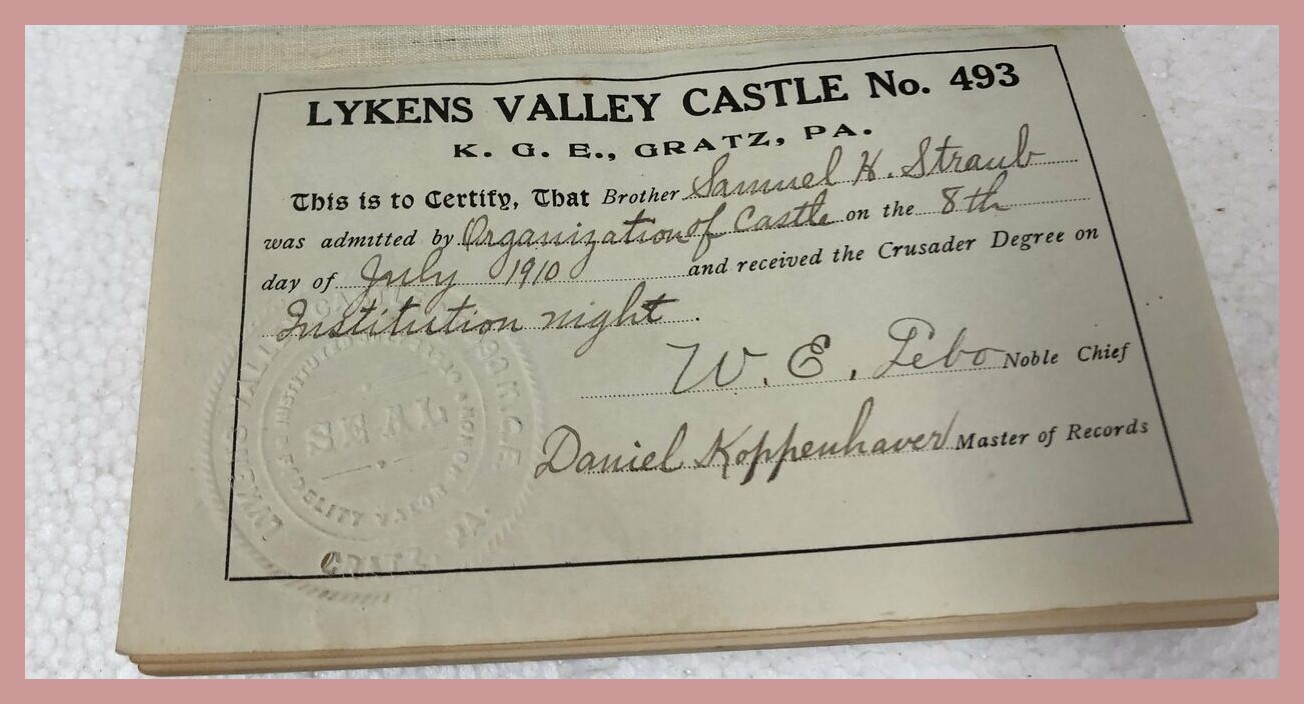 LYKENS VALLEY CASTLE No. 493
K. G. E., GRATZ, PA.
This is to Certify, That Brother Samuel H. Straub
was admitted by Organization of Castle on the 8th
day of July 1910 and received the Crusader Degree on
Institution night.
W. E. Lebo Noble Chief
Daniel Koppenhaver Master of Records
SEAL
FIDELITY VALOR
GRATZ, PA.